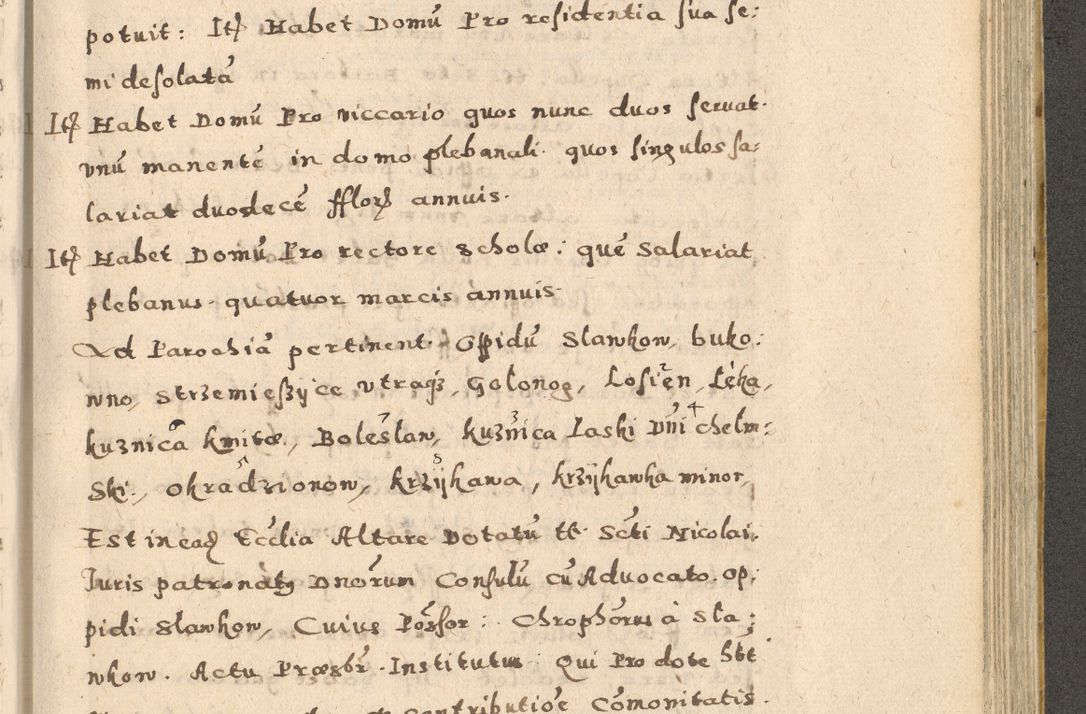 potuit: Itē Habet Domū Pro residentia sua se:
mi desolatā
Itē Habet Domū Pro viccario quos nunc duos seruat.
vnū manentē in domo plebanali. quos singulos sa:
lariat duodecē fflorē annuis.
Itē Habet Domū Pro rectore scholæ: quē Salariat
plebanus. quatuor marcis annuis.
Ad Parochiā pertinent. Oppidū Slawkow, buko:
wno, Strzemieszyce vtraq3, Golonog, Losień, Lęka,
kuznica kmitæ, Bolesław, kuznica Laski Dni chelm:
Ski., Okradzionow, krzÿkawa, krzÿkawka minor,
Est in eadē Ecclia Altare Dotatū tt. Scti Nicolai.
Iuris patronatus Dnōrum Consulū cū Aduocato. op:
pidi Slawkow, Cuius Possor: Chrophōrus à Sla:
wkow. Actu Præsbr. Institutus. Qui Pro dote Hbt
contributiōe Cōmonitatis.